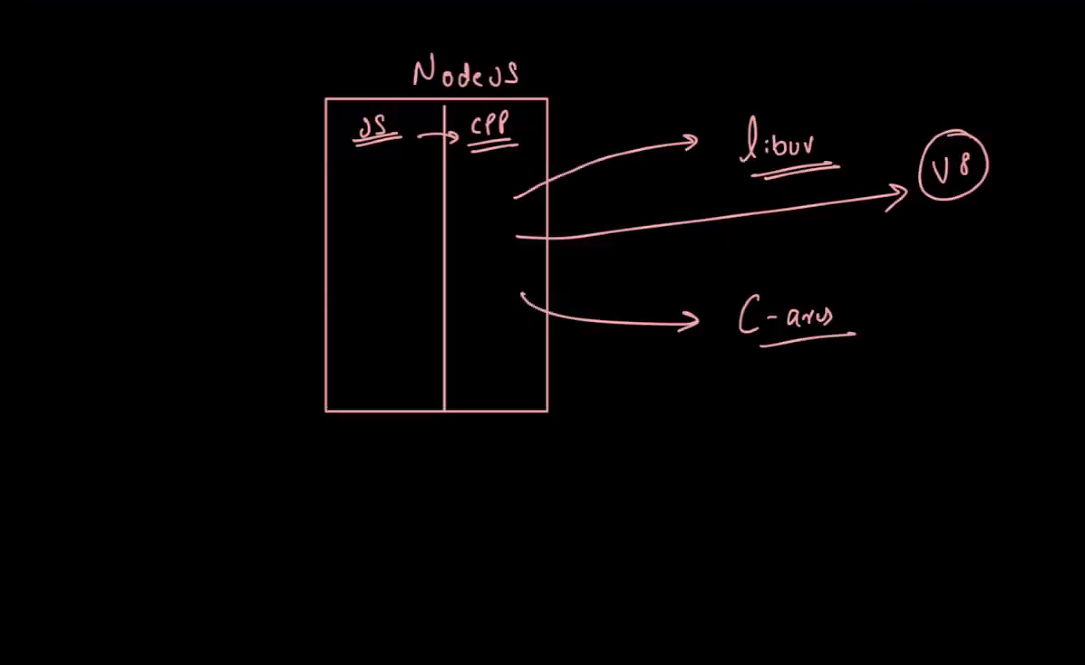 NodeJS
JS → CPP
libuv
V8
C-ares